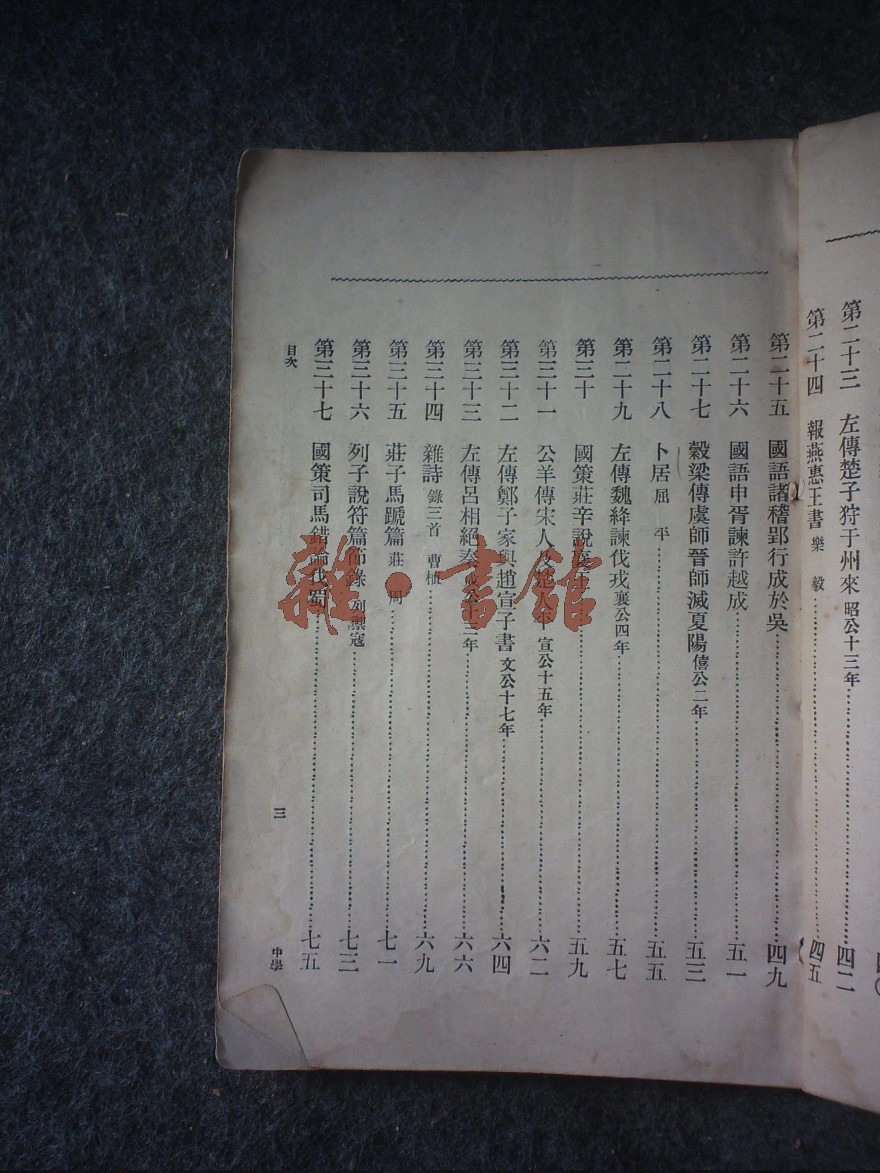 四〇
第二十三 左傳楚子狩于州來 昭公十三年 四二
第二十四 報燕惠王書 樂毅 四五
第二十五 國語諸稽郢行成於吳 四九
第二十六 國語申胥諫許越成 五一
第二十七 穀梁傳虞師晉師滅夏陽 僖公二年 五三
第二十八 卜居 屈平 五五
第二十九 左傳魏絳諫伐戎 襄公四年 五七
第三十 國策莊辛說襄王 五九
第三十一 公羊傳宋人及楚人平 宣公十五年 六二
第三十二 左傳鄭子家與趙宣子書 文公十七年 六四
第三十三 左傳呂相絕秦 成公十三年 六六
第三十四 雜詩 錄三首 曹植 六九
第三十五 莊子馬蹏篇 莊周 七一
第三十六 列子說符篇節錄 列禦寇 七三
第三十七 國策司馬錯論伐蜀 七五
目次 三 中學
雜·書館